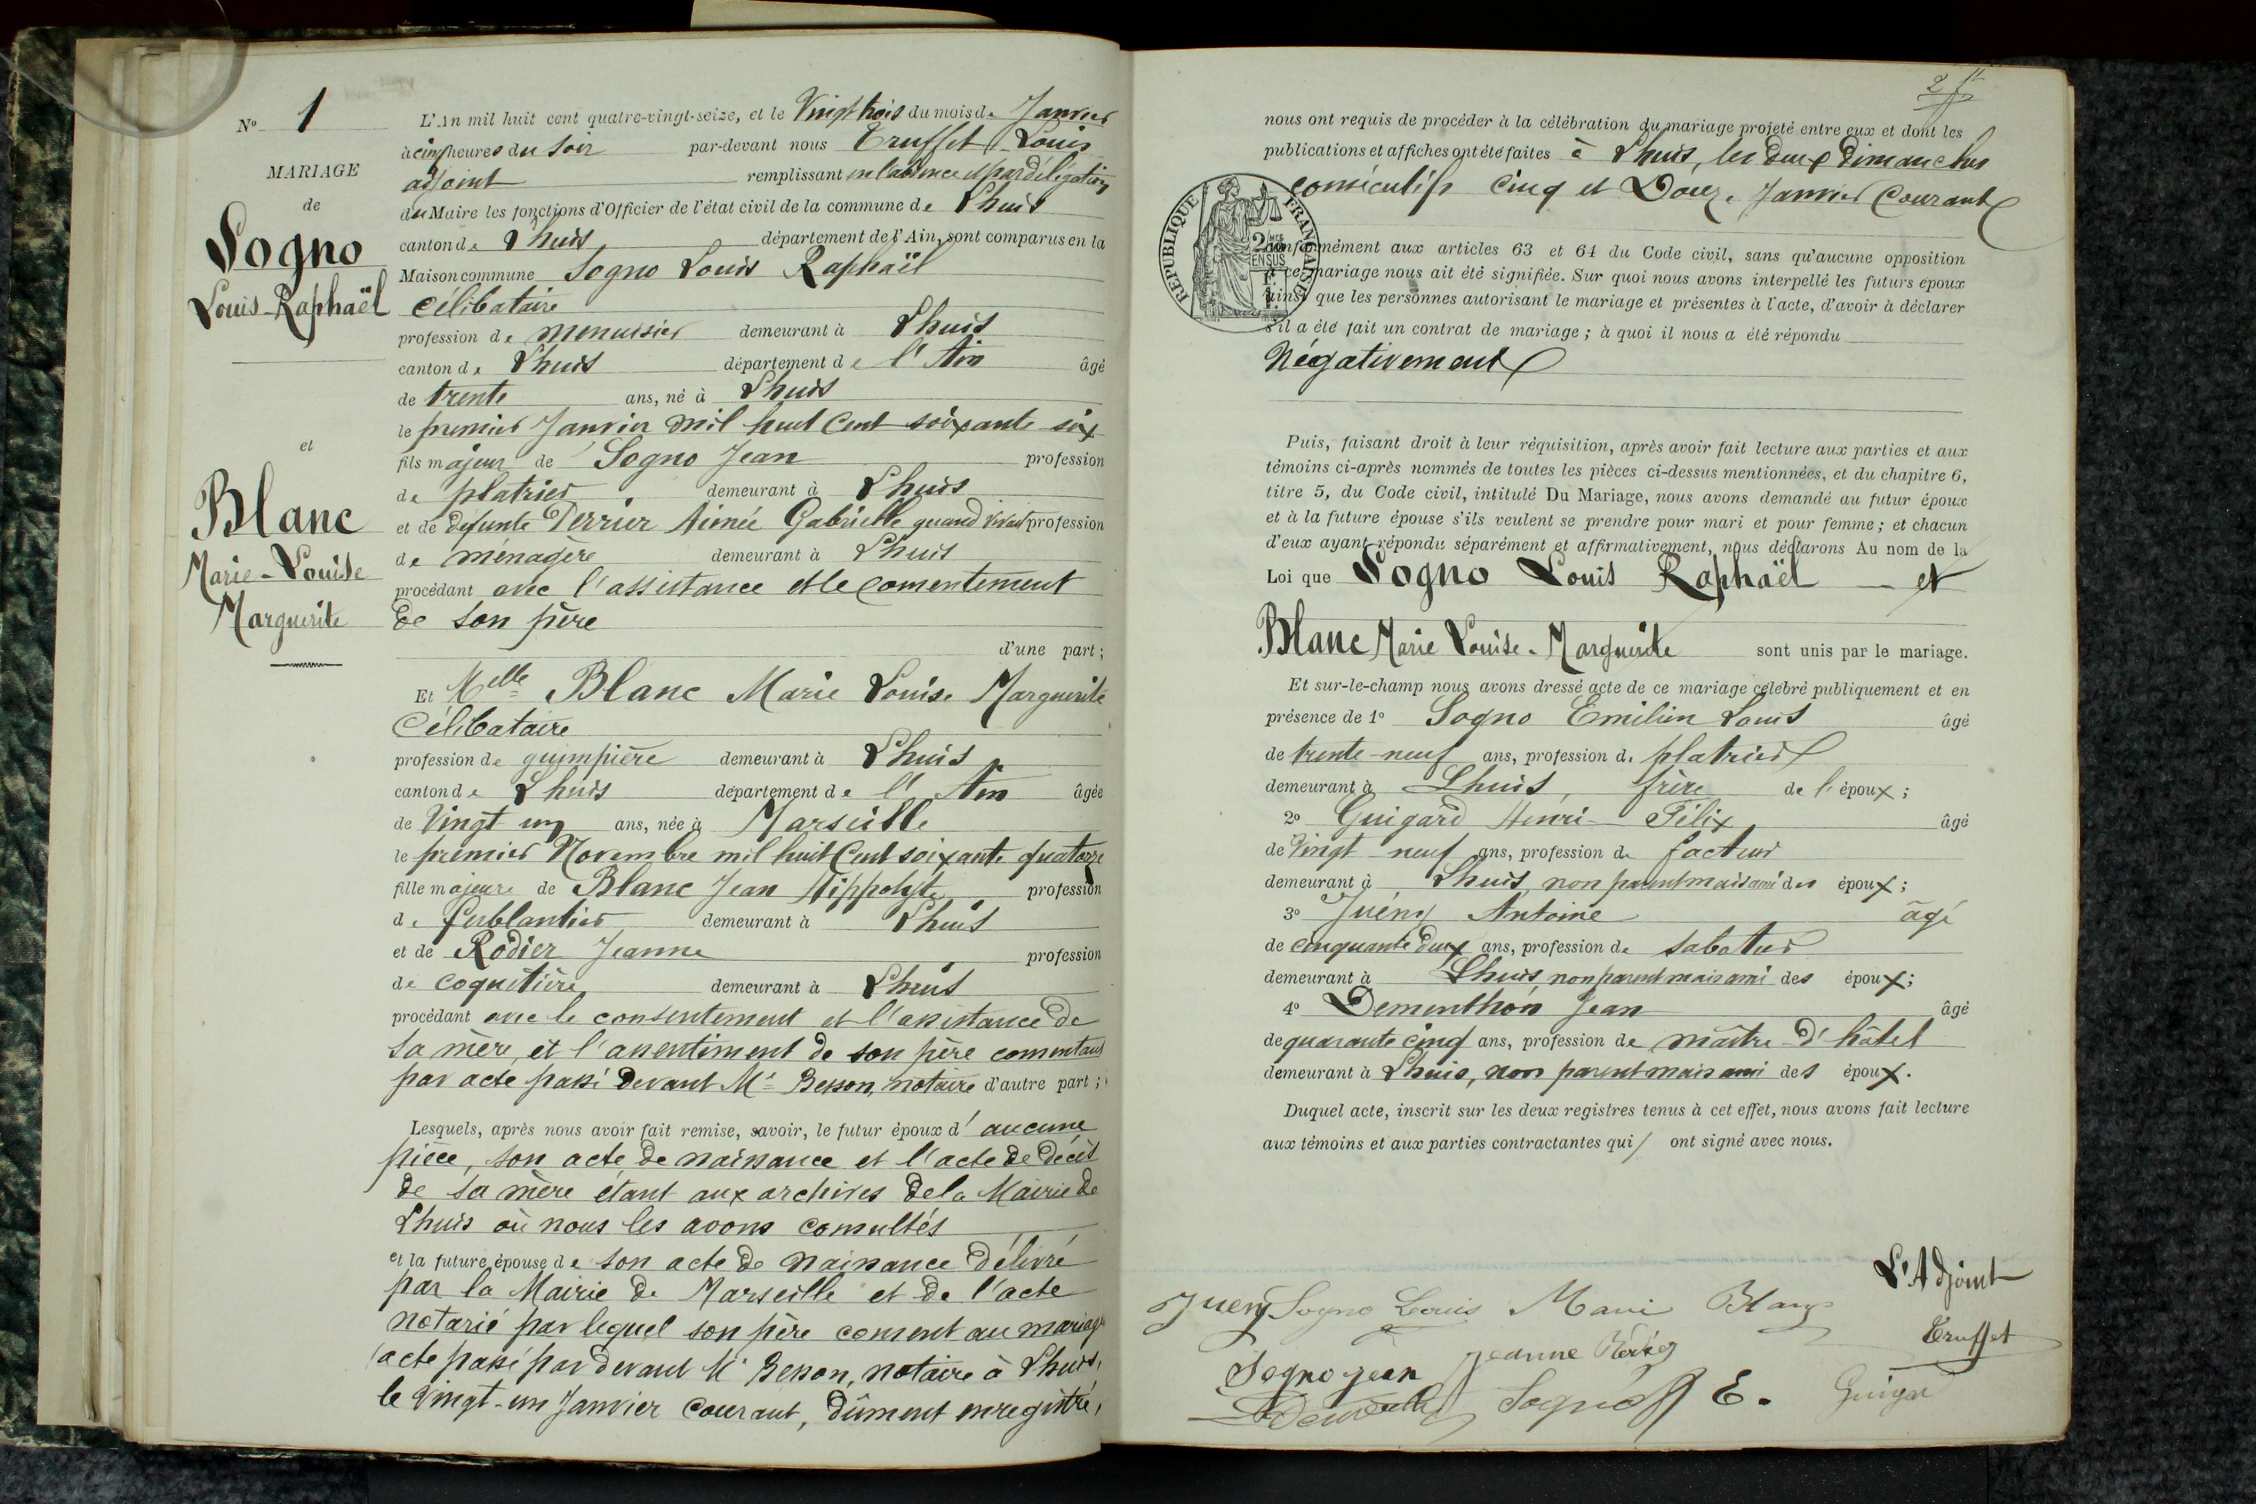 No 1
MARIAGE
de
Sogno
Louis-Raphaël
et
Blanc
Marie-Louise
Marguerite
L'An mil huit cent quatre-vingt-seize, et le Vingt trois du mois de Janvier
à cinq heures du soir par-devant nous Truffet Louis
adjoint remplissant en l'absence et par délégation
du Maire les fonctions d'Officier de l'état civil de la commune de Lhuis
canton de Lhuis département de l'Ain, sont comparus en la
Maison commune Sogno Louis Raphaël
Célibataire
profession de menuisier demeurant à Lhuis
canton de Lhuis département de l'Ain âgé
de trente ans, né à Lhuis
le premier Janvier mil huit cent soixante six
fils majeur de Sogno Jean profession
de platrier demeurant à Lhuis
et de défunte Perrier Aimée Gabrielle quand vivait profession
de ménagère demeurant à Lhuis
procédant avec l'assistance et le consentement
de son père
d'une part;
Et Melle Blanc Marie Louise Marguerite
Célibataire
profession de guimpière demeurant à Lhuis
canton de Lhuis département de l'Ain âgée
de Vingt un ans, née à Marseille
le premier Novembre mil huit Cent soixante quatorze
fille majeure de Blanc Jean Hippolyte profession
de ferblantier demeurant à Lhuis
et de Rodier Jeanne profession
de coquetière demeurant à Lhuis
procédant avec le consentement et l'assistance de
sa mère, et l'assentiment de son père consentant
par acte passé devant Me Besson, notaire d'autre part;
Lesquels, après nous avoir fait remise, savoir, le futur époux d'aucune
pièce, son acte de naissance et l'acte de décès
de sa mère étant aux archives de la Mairie de
Lhuis où nous les avons consultés
et la future épouse de son acte de naissance délivré
par la Mairie de Marseille et de l'acte
notarié par lequel son père consent au mariage
acte passé par devant Me Besson, notaire à Lhuis,
le vingt-un Janvier courant, dûment enregistré,
2
nous ont requis de procéder à la célébration du mariage projeté entre eux et dont les
publications et affiches ont été faites à Lhuis, les deux dimanches
consécutifs cinq et Douze Janvier Courant
RÉPUBLIQUE FRANÇAISE
conformément aux articles 63 et 64 du Code civil, sans qu'aucune opposition
à ce mariage nous ait été signifiée. Sur quoi nous avons interpellé les futurs époux
ainsi que les personnes autorisant le mariage et présentes à l'acte, d'avoir à déclarer
s'il a été fait un contrat de mariage; à quoi il nous a été répondu
Négativement
Puis, faisant droit à leur réquisition, après avoir fait lecture aux parties et aux
témoins ci-après nommés de toutes les pièces ci-dessus mentionnées, et du chapitre 6,
titre 5, du Code civil, intitulé Du Mariage, nous avons demandé au futur époux
et à la future épouse s'ils veulent se prendre pour mari et pour femme; et chacun
d'eux ayant répondu séparément et affirmativement, nous déclarons Au nom de la
Loi que Sogno Louis Raphaël et
Blanc Marie Louise-Marguerite sont unis par le mariage.
Et sur-le-champ nous avons dressé acte de ce mariage célébré publiquement et en
présence de 1o Sogno Emilien Louis âgé
de trente-neuf ans, profession de platrier
demeurant à Lhuis, frère de l'époux;
2o Guigard Henri Félix âgé
de Vingt-neuf ans, profession de facteur
demeurant à Lhuis, non parent mais ami des époux;
3o Juény Antoine âgé
de cinquante deux ans, profession de sabotier
demeurant à Lhuis, non parent mais ami des époux;
4o Dementhon Jean âgé
de quarante cinq ans, profession de maître d'hôtel
demeurant à Lhuis, non parent mais ami des époux.
Duquel acte, inscrit sur les deux registres tenus à cet effet, nous avons fait lecture
aux témoins et aux parties contractantes qui ont signé avec nous.
L'Adjoint
Juény Sogno Louis Marie Blanc
Truffet
Sogno jean Jeanne
Sogno E.